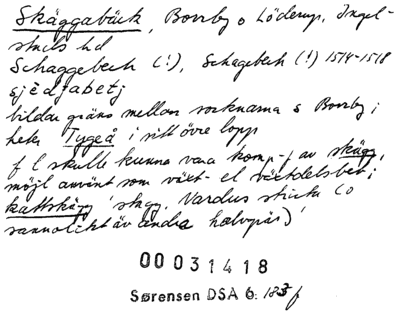 Skäggabäck, Borrby o Löderup, Ingel-
stads hd
Schaggebech (!), Schagebech (!) 1514-1518
bildar gräns mellan socknarna s Borrby;
heter Tygeå i sitt övre lopp
f l skulle kunna vara komp-f av skägg,
möjl använt som växt- el växtdelsbet;
kattskägg 'stagg, Nardus stricta (o
sannolikt äv andra halvgräs)'
00031418
Sørensen DSA 6: f